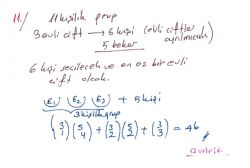 11.) 11 kişilik grup
3 evli çift → 6 kişi (evli çiftler ayrılmıcak)
5 bekar
6 kişi seçilecek ve en az bir evli çift olcak.
(E₁) (E₂) (E₃) + 5 kişi
3 kişilik grup
(3 1)(5 4) + (3 2)(5 2) + (3 3) = 46